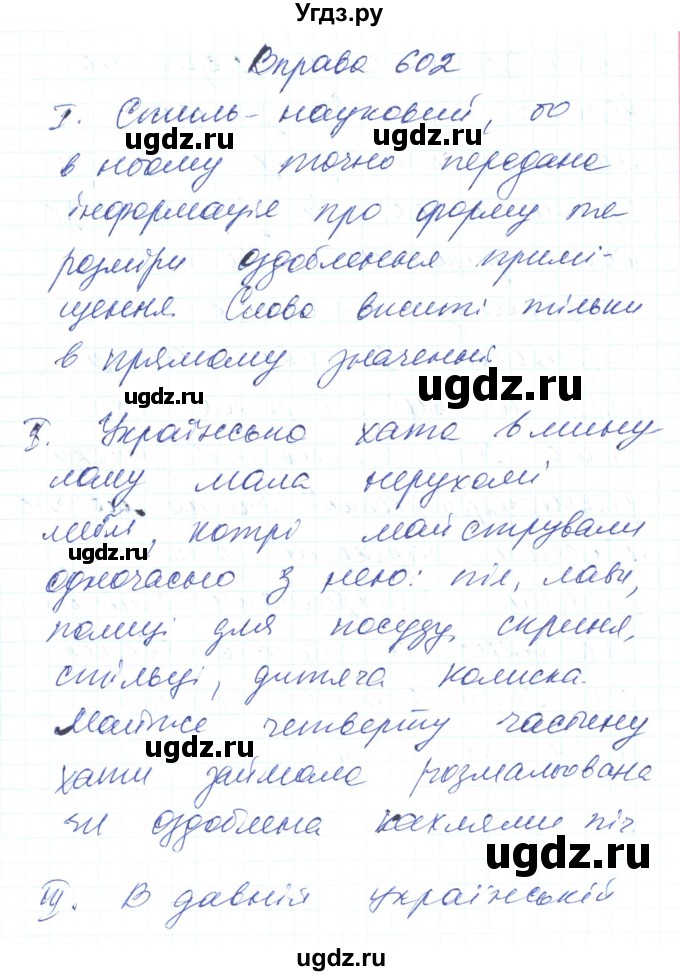 Угдз.ру
Вправа 602
I. Стиль - науковий, бо
ugdz.ru
в ньому точно передана
інформація про форму та
розміри оздоблення примі-
ugdz.ru
щення. Слова вжиті тільки
в прямому значенні
ugdz.ru
Українська хата в мину
лому мала нерухомі
меблі, котрі майстрували
ugdz.ru
одночасно з нею: піл, лави,
полиці для посуду, скриня,
стільці, дитяча колиска.
ugdz.ru
Майже четверту частину
хати займала розмальована
чи оздоблена кахлями піч.
ugdz.ru
III. В давній українській
ugdz.ru
ugdz.ru